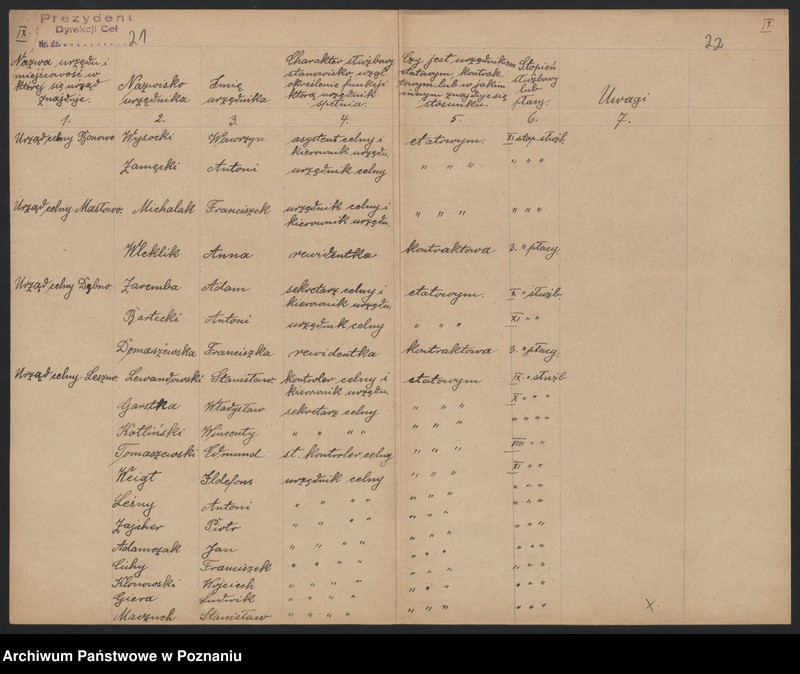 Prezydent
Dyrekcji Ceł
Nr. dz.
IX.
21
22
IX
Nazwa urzędu i miejscowość w której się urząd znajduje.
Nazwisko urzędnika
Imię urzędnika
Charakter służbowy stanowisko wzgl. określenie funkcji którą urzędnik spełnia.
Czy jest urzędnikiem etatowym, kontraktowym lub w jakim innym znajduje się stosunku.
Stopień służbowy lub płacy.
Uwagi
1. 2. 3. 4. 5. 6. 7.
Urząd celny Wysocki Wawrzyn asystent celny i kierownik urzędu. etatowym. XI stop. służb.
Zamęcki Antoni urzędnik celny " " " " " "
Urząd celny Masłowo. Michalak Franciszek urzędnik celny i kierownik urzędu. " " " " " "
Wleklik Anna rewidentka kontraktowa 3. " płacy.
Urząd celny Dębno. Zaremba Adam sekretarz celny i kierownik urzędu. etatowym. X " służb.
Bartecki Antoni urzędnik celny " " " XI " "
Domaszewska Franciszka rewidentka kontraktowa 3. " płacy.
Urząd celny Leszno. Lewandowski Stanisław. kontroler celny i kierownik urzędu etatowym IX " służb
Garstka Władysław sekretarz celny " " " X " " "
Kotliński Wincenty " " " " " " " " " " "
Tomaszewski Edmund st. kontroler celny " " " VIII " "
Weigt Ildefons urzędnik celny " " " XI " "
Leśny Antoni " " " " " " " " " "
Zajcher Piotr " " " " " " " " " "
Adamczak Jan " " " " " " " " " "
Cichy Franciszek " " " " " " " " " "
Klonowski Wojciech " " " " " " " " " "
Giera Ludwik " " " " " " " " " "
Maczuch Stanisław " " " " " " " " " "
x.
Archiwum Państwowe w Poznaniu